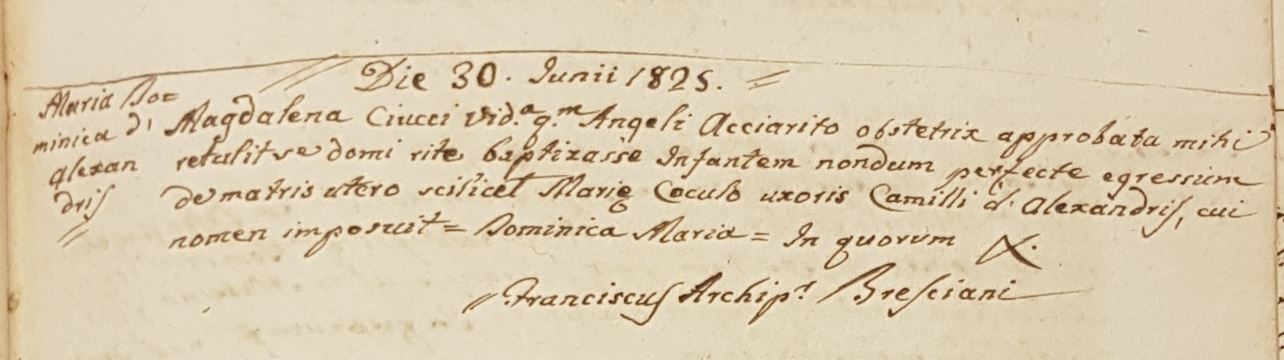 Die 30. Iunii 1825.
Maria Do=
minica d'
Alexan
dris
Magdalena Ciucci vid.a q.m Angeli Acciarito obstetrix approbata mihi
retulit se domi rite baptizasse Infantem nondum perfecte egressum
de matris utero scilicet Marię Coculo uxoris Camilli d' Alexandris, cui
nomen imposuit = Dominica Maria = In quorum
Franciscus Archip.r Bresciani